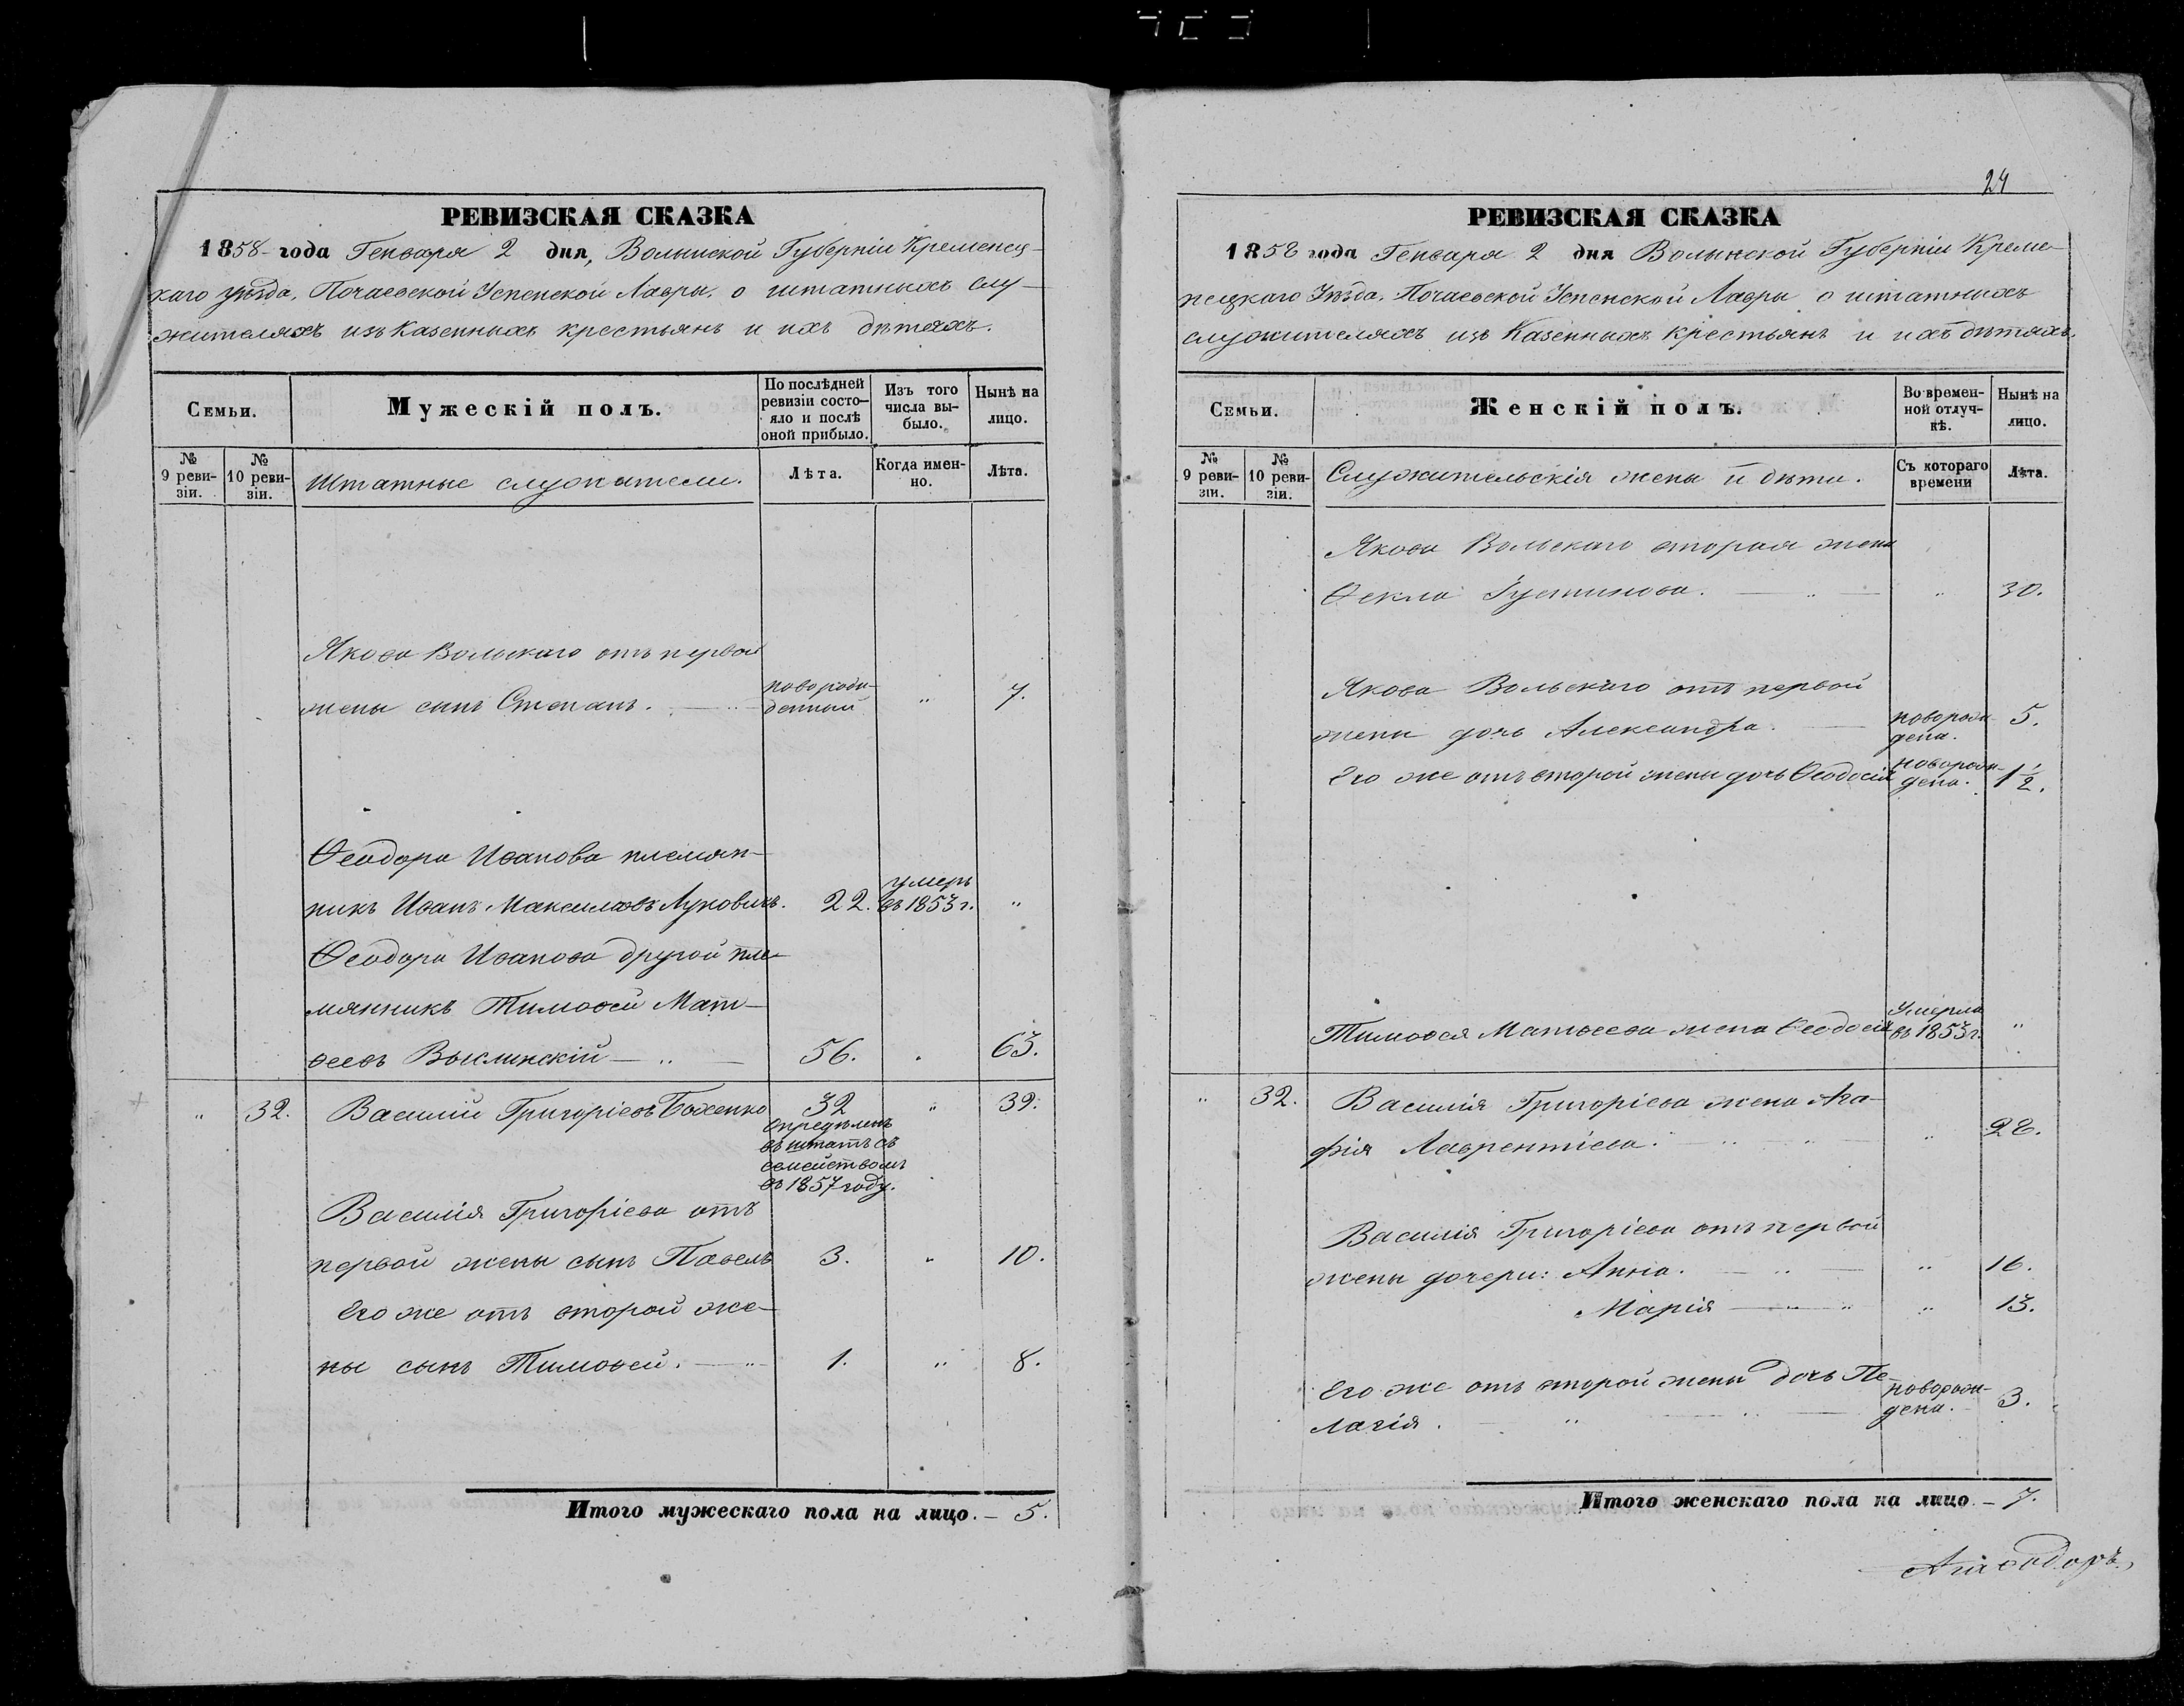 РЕВИЗСКАЯ СКАЗКА
1858 года Генваря 2 дня, Волынской Губерніи Кременец-
каго уѣзда, Почаевской Успенской Лавры, о штатныхъ слу-
жителяхъ изъ Казенныхъ крестьянъ и ихъ дѣтяхъ.
Семьи.
Мужескій полъ.
По послѣдней ревизіи состо-
яло и послѣ оной прибыло.
Изъ того числа вы-
было.
Нынѣ на лицо.
№ 9 реви-
зіи.
№ 10 реви-
зіи.
Штатные служители.
Лѣта.
Когда имен-
но.
Лѣта.
Якова Вольскаго отъ первой
жены сынъ Степанъ. новорож-
денный " 7.
Ѳеодора Иванова племян-
никъ Иванъ Максимовъ 22. умеръ
въ 1853 г. "
Ѳеодора Иванова другой пле-
мянникъ Тимоѳей Мат-
ѳеевъ 56. " 63.
" 32. Василій Григоріевъ Боженко 32 " 39.
опредѣленъ
въ штатъ съ
семействомъ
въ 1857 году.
Василія Григоріева отъ
первой жены сынъ Павелъ 3. " 10.
Его же отъ второй же-
ны сынъ Тимоѳей. 1. " 8.
Итого мужескаго пола на лицо. – 5.
24
РЕВИЗСКАЯ СКАЗКА
1858 года Генваря 2 дня Волынской Губерніи Креме-
нецкаго Уѣзда, Почаевской Успенской Лавры о штатныхъ
служителяхъ изъ Казенныхъ крестьянъ и ихъ дѣтяхъ.
Семьи.
Женскій полъ.
Во времен-
ной отлуч-
кѣ.
Нынѣ на лицо.
№ 9 реви-
зіи.
№ 10 реви-
зіи.
Служительскія жены и дѣти.
Съ котораго времени
Лѣта.
Якова Вольскаго вторая жена
Ѳекла Густинова. " 30.
Якова Вольскаго отъ первой
жены дочь Александра. новорож-
дена. 5.
Его же отъ второй жены дочь Ѳеодосія новорож-
дена. 1½.
Тимоѳея Матѳеева жена Ѳеодосія Умерла
въ 1853 г. "
" 32. Василія Григоріева жена Ага-
фія Лаврентіева. " 28.
Василія Григоріева отъ первой
жены дочери: Анна. " 16.
Марія " 13.
Его же отъ второй жены дочь Пе-
лагія. новорож-
дена. 3.
Итого женскаго пола на лицо – 7.